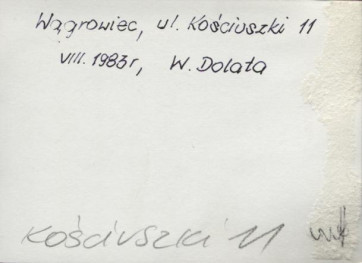 Wągrowiec, ul. Kościuszki 11
VIII. 1983r, W. Dolata
Kościuszki 11